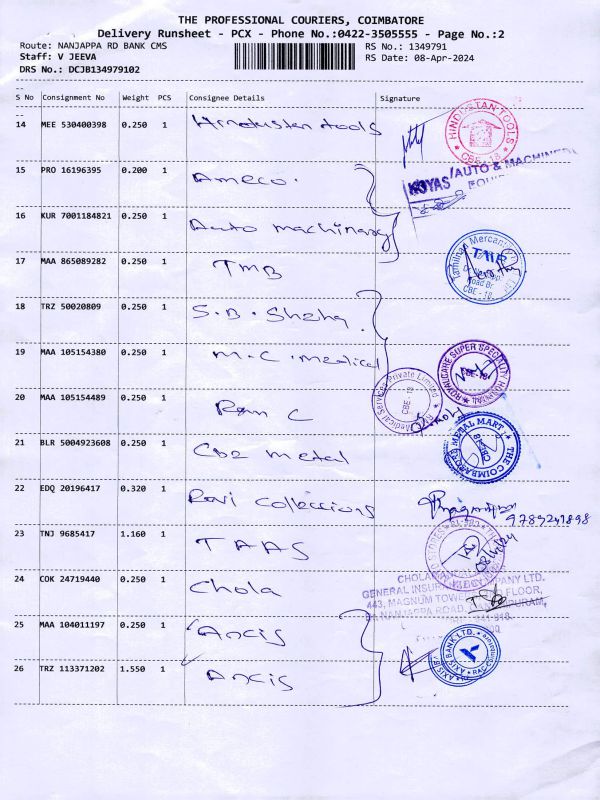 THE PROFESSIONAL COURIERS, COIMBATORE
Delivery Runsheet - PCX - Phone No.:0422-3505555 - Page No.:2
Route: NANJAPPA RD BANK CMS
Staff: V JEEVA
DRS No.: DCJB134979102
RS No.: 1349791
RS Date: 08-Apr-2024
S No Consignment No Weight PCS Consignee Details Signature
14 MEE 530400398 0.250 1 Hindustan tools
HINDUSTAN TOOLS CBE-18
15 PRO 16196395 0.200 1 Ameco.
KOVAS / AUTO & MACHINERY
16 KUR 7001184821 0.250 1 Auto machinary
17 MAA 865089282 0.250 1 TMB
Tamilnad Mercantile
TMB
Road Br.
CBE - 18.
18 TRZ 50020809 0.250 1 S.B.
19 MAA 105154380 0.250 1 M.C. medical
ROYALCARE SUPER SPECIALITY HOSPITAL
CBE-18
20 MAA 105154489 0.250 1 Ram C
Medical Services Private Limited
CBE - 18
21 BLR 5004923608 0.250 1 Cbe metal
THE COIMBATORE METAL MART
22 EDQ 20196417 0.320 1 Ravi Collections
9789241898
23 TNJ 9685417 1.160 1 TAAS
24 COK 24719440 0.250 1 Chola
CHOLA
GENERAL INSURANCE COMPANY LTD.
443, MAGNUM TOWER FLOOR,
NANJAPPA ROAD,
25 MAA 104011197 0.250 1 Axcis
26 TRZ 113371202 1.550 1 Axcis
AXIS BANK LTD.